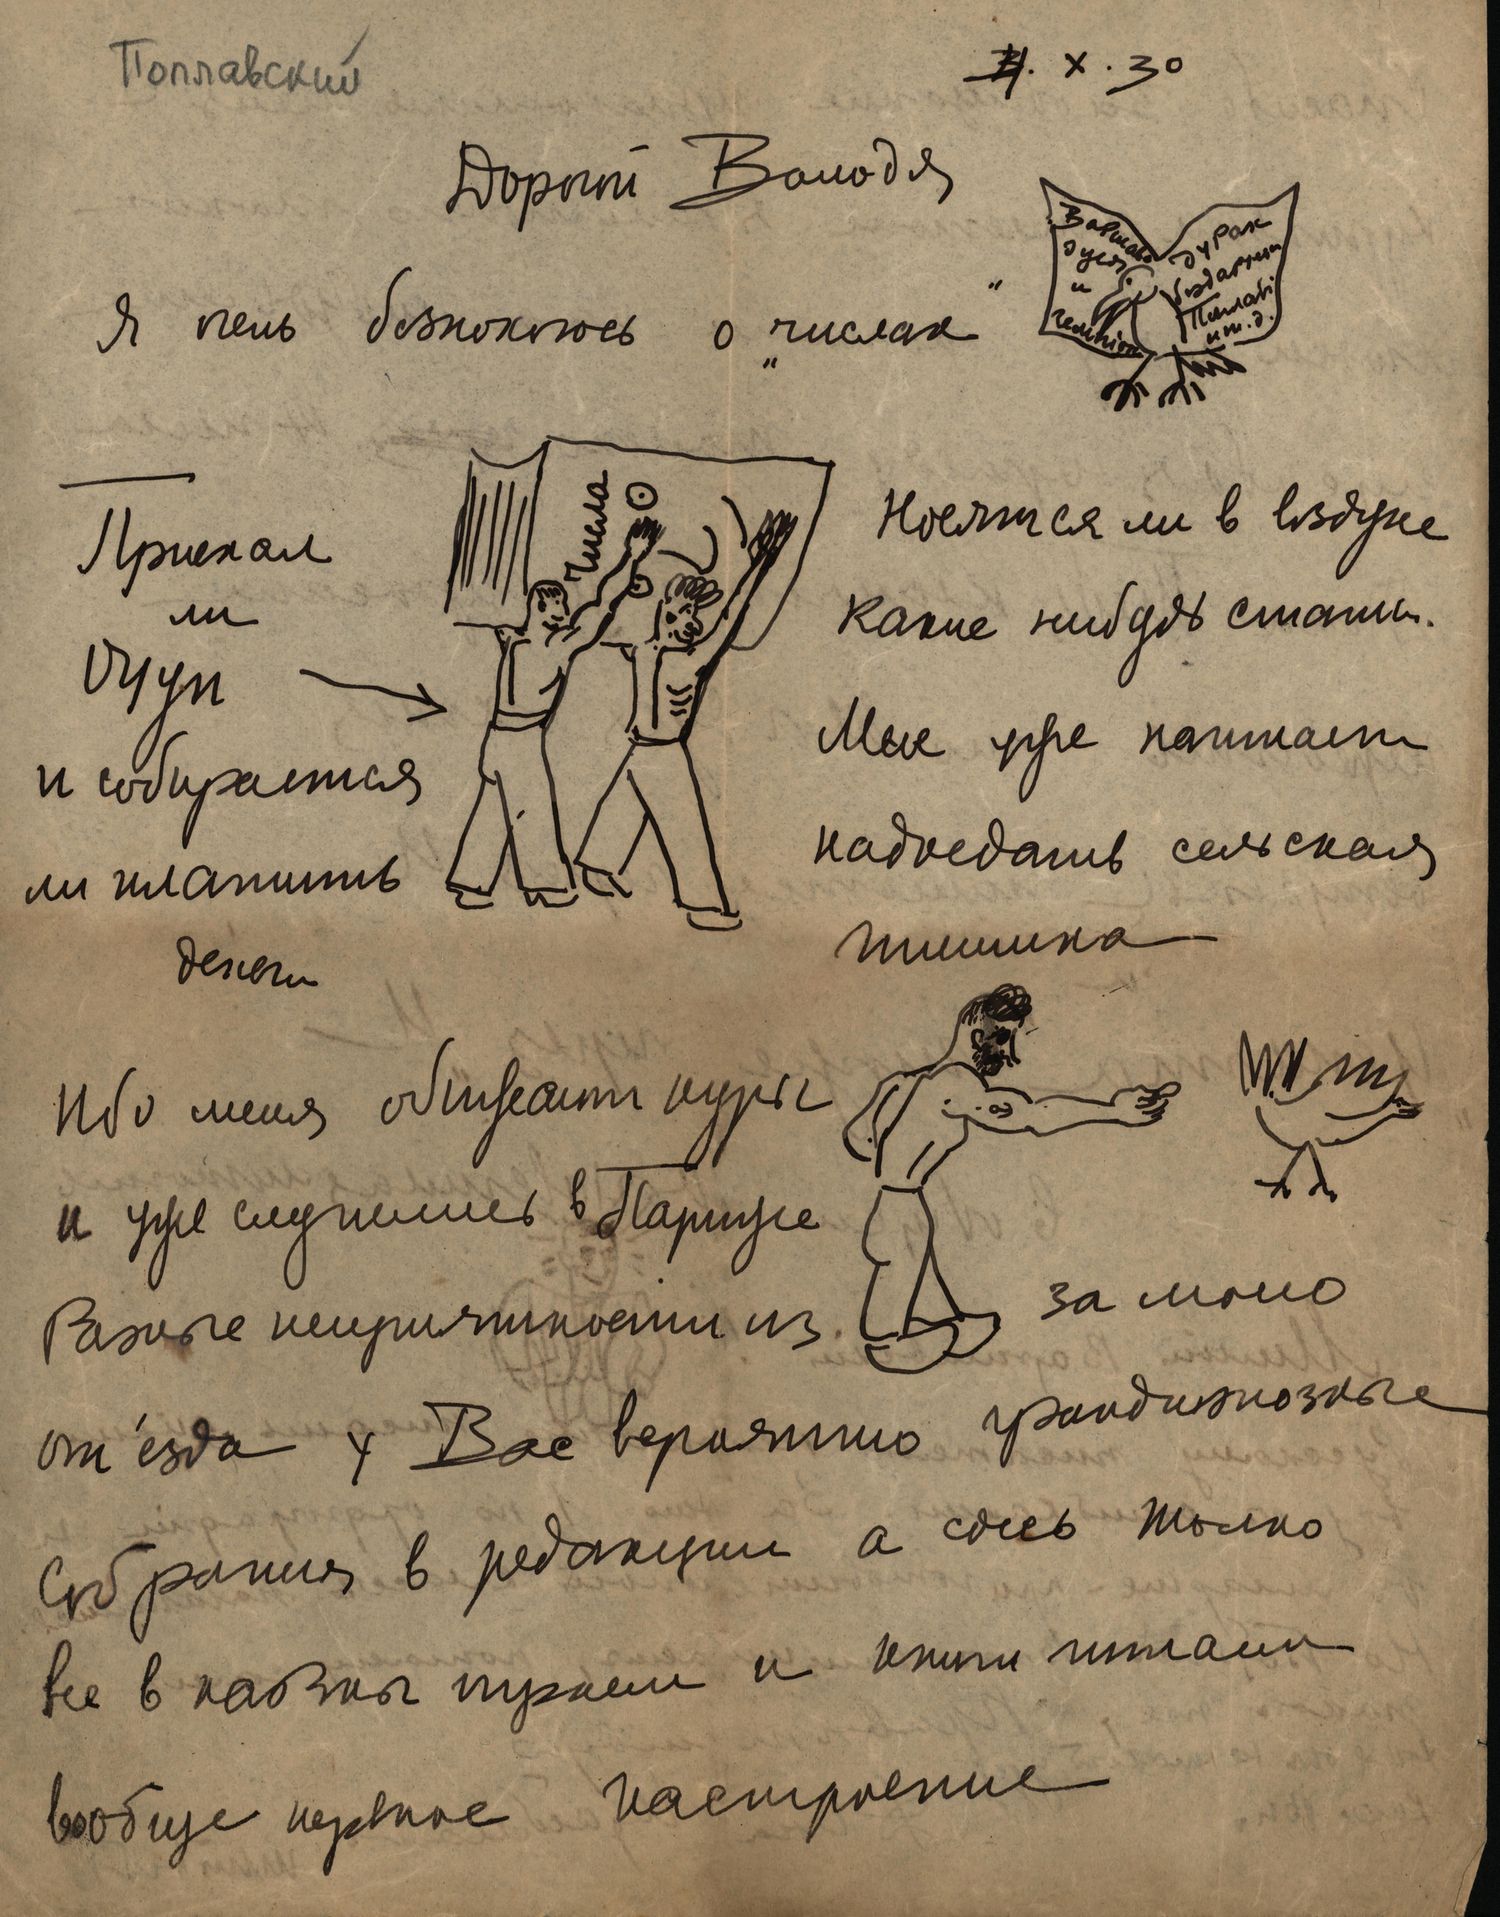 Поплавский
X. 30
Дорогой Володя
Я очень безпокоюсь о "числах"
дуся
и
гений
дурак
бездарный
и т. д.
Числа
Приехал
ли
Оцуп
и собирается
ли платить
деньги
Носятся ли в воздухе
какие нибудь статьи.
Мне уже начинает
надоедать сельская
тишина
Ибо меня обижают куры
и уже случились в Париже
Разные неприятности из за моего
от'езда у Вас вероятно грандиозные
Собрания в редакции а сдесь только
все в карты играем и книги читаем
вообще нервное настроение